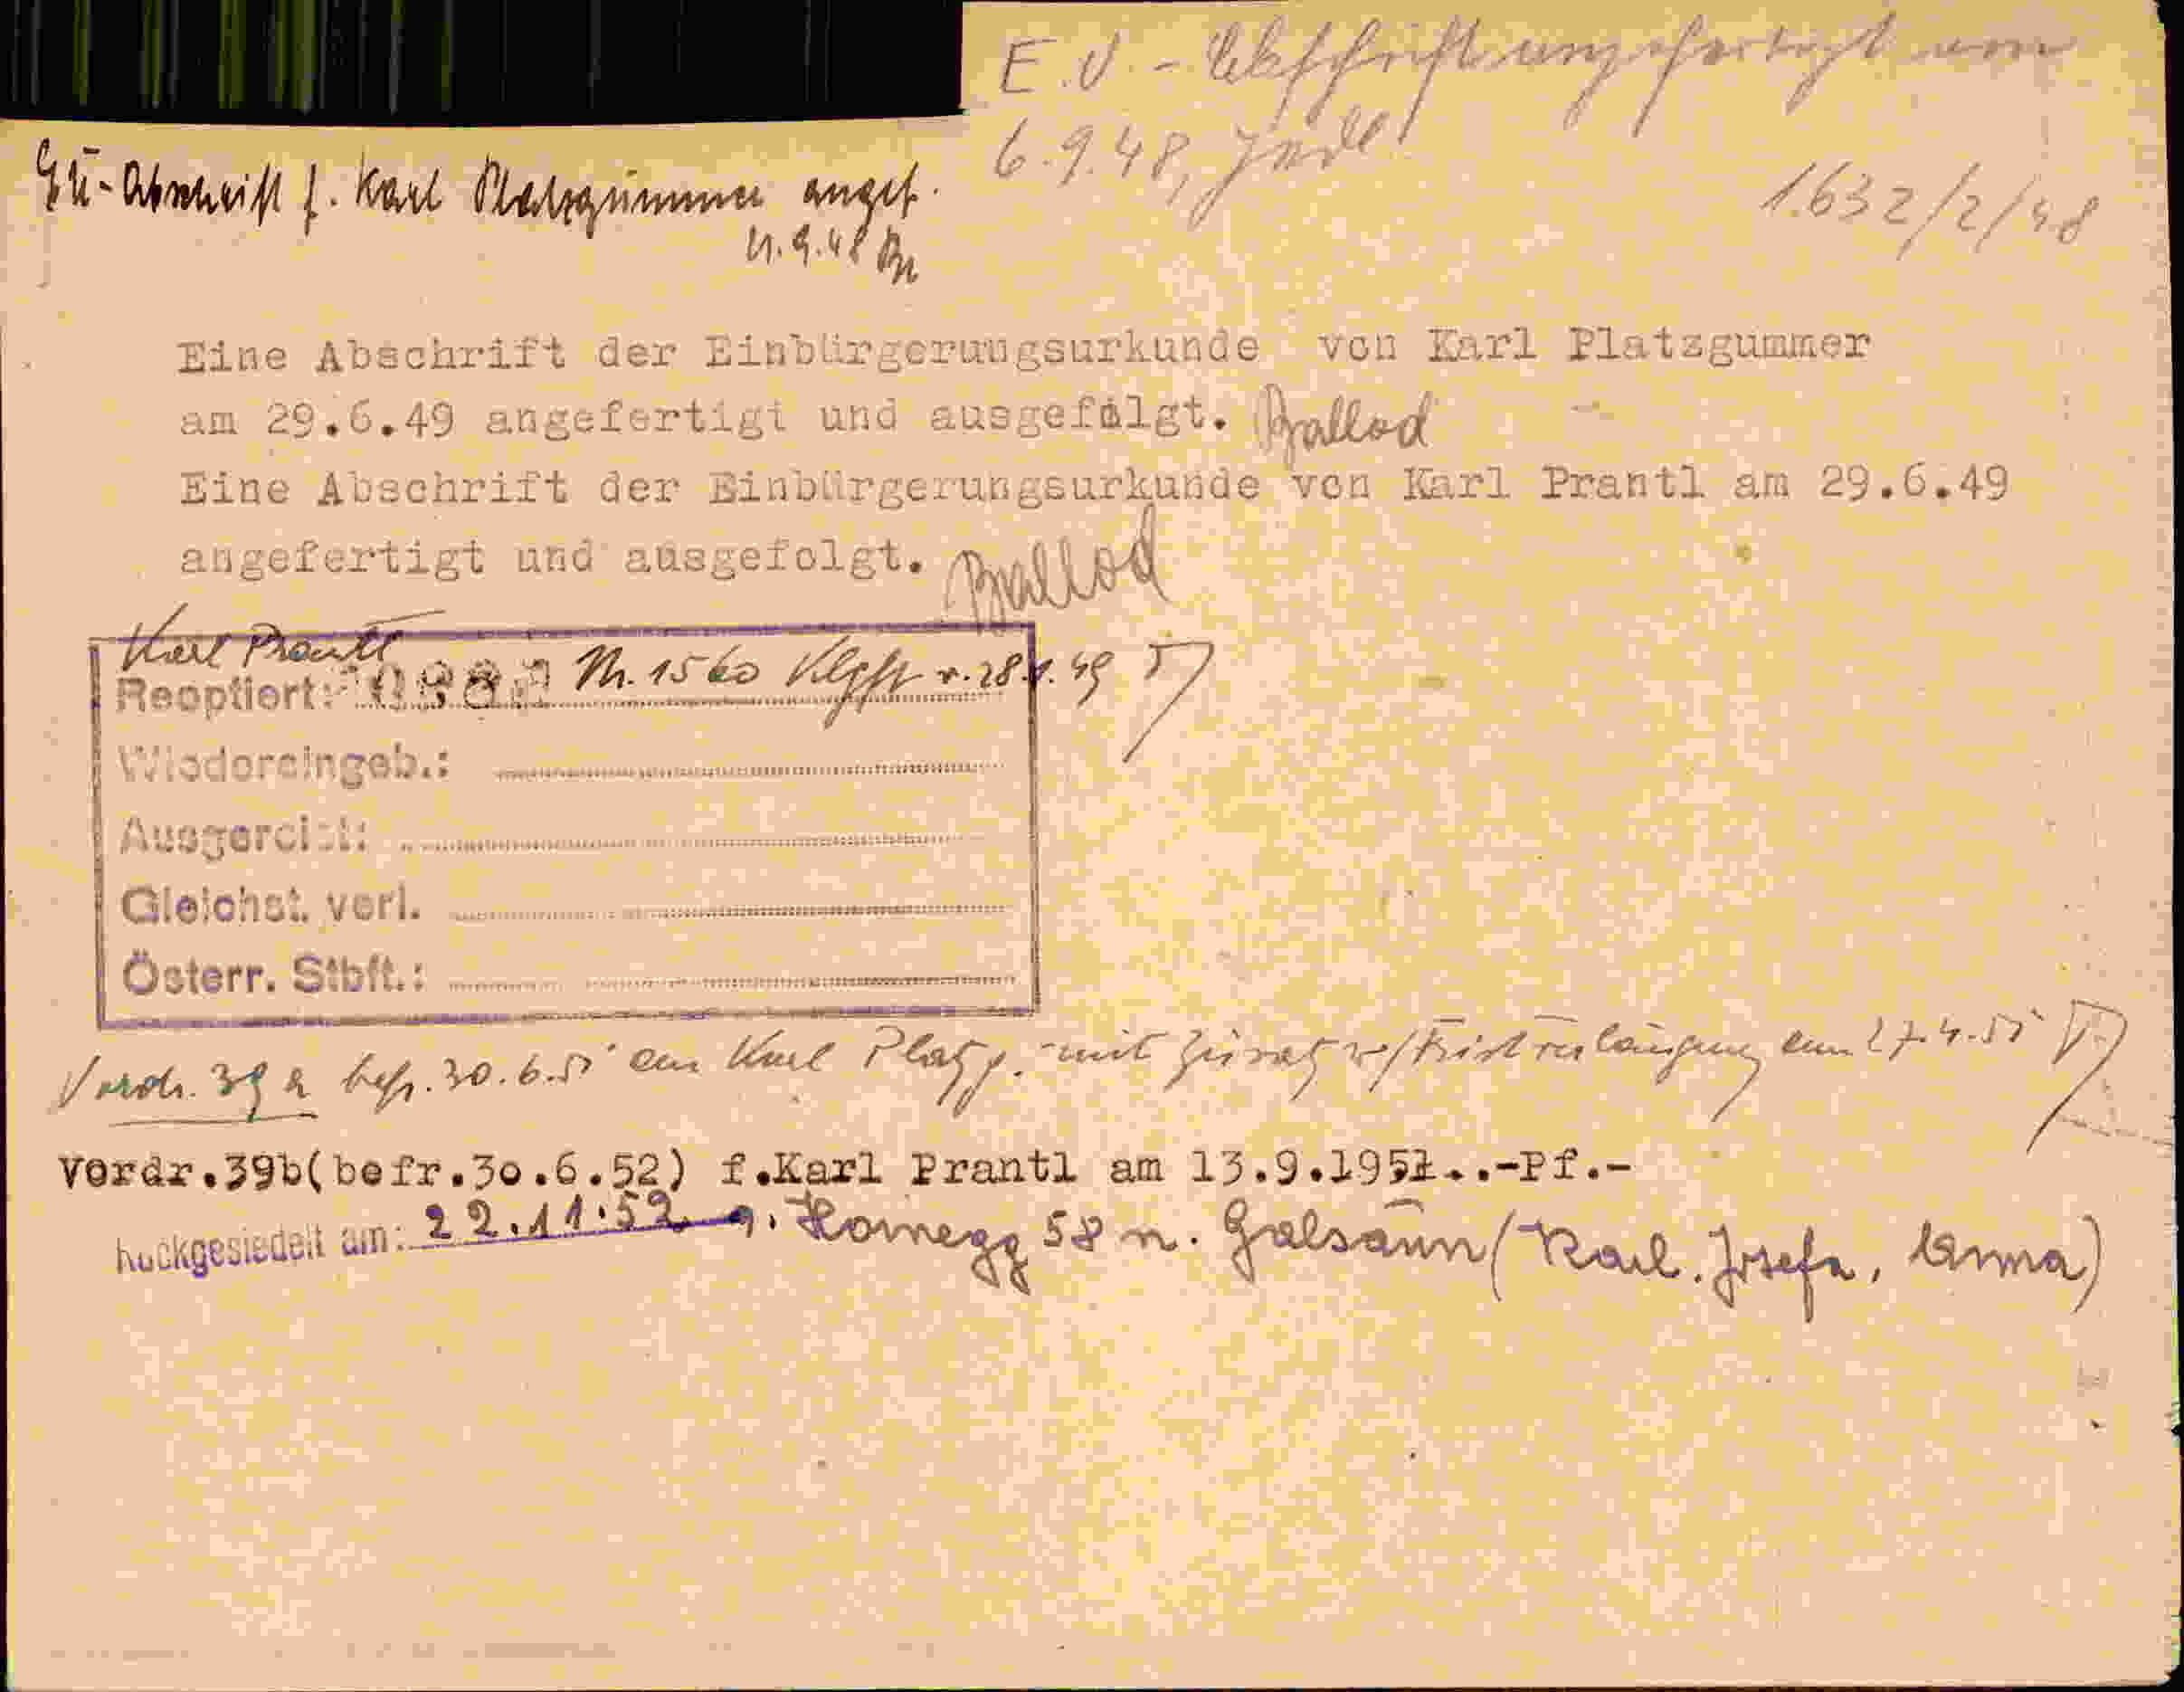 E.U. - Abschrift angefertigt am
6.9.48,
1.632/2/48
EU-Abschrift f. Karl Platzgummer angef.
21.9.48
Eine Abschrift der Einbürgerungsurkunde von Karl Platzgummer
am 29.6.49 angefertigt und ausgefolgt. Ballod
Eine Abschrift der Einbürgerungsurkunde von Karl Prantl am 29.6.49
angefertigt und ausgefolgt. Ballod
Karl Prantl
Reoptiert: Nr. 1560 v. 28.1.49
Wiedereingeb.:
Ausgereist:
Gleichst. verl.
Österr. Stbft.:
Vordr. 39a befr. 30.6.51 an Karl Platzg. mit Zusatz Fristverlängerung am 27.4.51
Vordr.39b(befr.30.6.52) f.Karl Prantl am 13.9.1951..-Pf.-
Rückgesiedelt am: 22.11.52 58 n. Galsaun (Karl, Josefa, Anna)